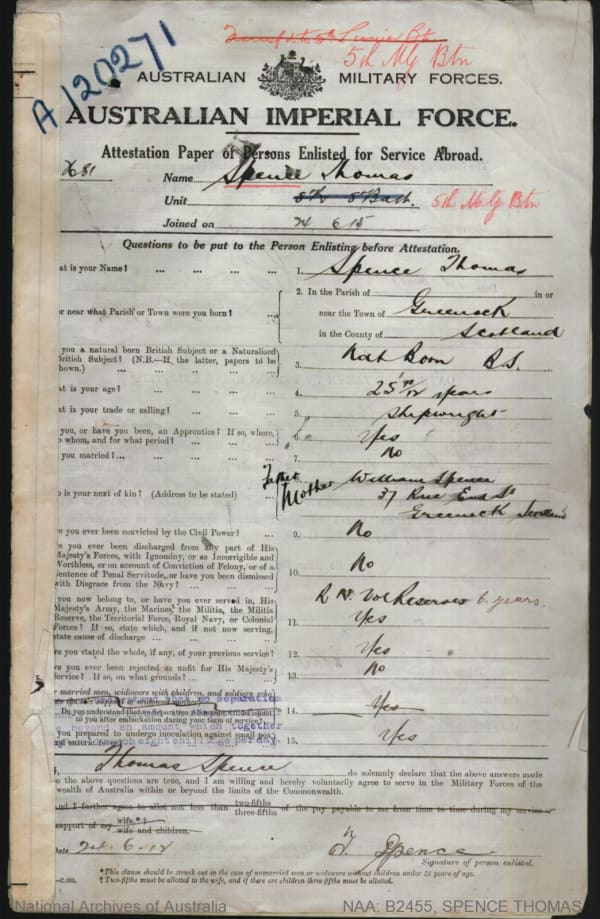 A 120271
5th M G Btn
AUSTRALIAN MILITARY FORCES.
AUSTRALIAN IMPERIAL FORCE.
Attestation Paper of Persons Enlisted for Service Abroad.
Name Spence Thomas
Unit 5th M G Btn
Joined on 24 6 15
Questions to be put to the Person Enlisting before Attestation.
at is your Name? ... ... ... ... 1. Spence Thomas
2. In the Parish of in or
or near what Parish or Town were you born? ... near the Town of Greenock
in the County of Scotland
you a natural born British Subject or a Naturalized
British Subject? (N.B.—If the latter, papers to be
hown.) 3. Nat Born B.S.
t is your age? ... ... ... ... 4. years
t is your trade or calling? ... ... ... 5. Shipwright
you, or have you been, an Apprentice? If so, where,
o whom, and for what period? ... ... ... 6. Yes
you married?... ... ... ... 7. No
Father William Spence
o is your next of kin? (Address to be stated) Mother 37
Greenock Scotland
e you ever been convicted by the Civil Power? ... 9. No
e you ever been discharged from any part of His
Majesty's Forces, with Ignominy, or as Incorrigible and
Worthless, or on account of Conviction of Felony, or of a
entence of Penal Servitude, or have you been dismissed
with Disgrace from the Navy? ... ... ... 10. No
you now belong to, or have you ever served in, His
Majesty's Army, the Marines, the Militia, the Militia
Reserve, the Territorial Force, Royal Navy, or Colonial
Forces? If so, state which, and if not now serving,
state cause of discharge ... ... ... 11. R N Vol Reserves 6 years.
Yes
e you stated the whole, if any, of your previous service? 12. Yes
e you ever been rejected as unfit for His Majesty's
Service? If so, on what grounds? ... ... 13. No
r married men, widowers with children, and soldiers who
Do you understand that no Separation Allowance
to you after embarkation during your term of service? 14. Yes
you prepared to undergo inoculation against small pox
and enteric fever? 15. Yes
Thomas Spence do solemnly declare that the above answers made
o the above questions are true, and I am willing and hereby voluntarily agree to serve in the Military Forces of the
wealth of Australia within or beyond the limits of the Commonwealth.
And I further agree to allot not less than two-fifths three-fifths of the pay payable to me from time to time during my service
support of my wife.*† wife and children.
Date T. Spence
Signature of person enlisted.
*This clause should be struck out in the case of unmarried men or widowers without children under 18 years of age.
†Two-fifths must be allotted to the wife, and if there are children three-fifths must be allotted.
National Archives of Australia NAA: B2455, SPENCE THOMAS